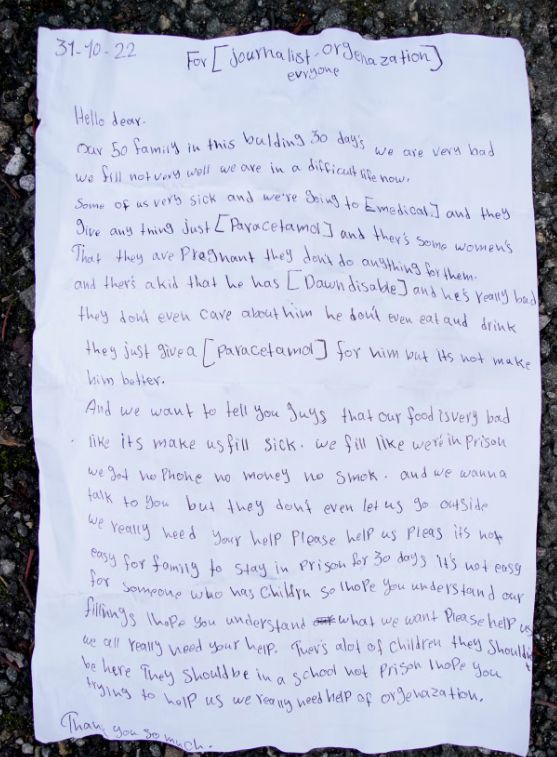 31-10-22
For [journalist-orgenazation]
evryone
Hello dear.
Our 50 family in this bulding 30 day's we are very bad
we fill not very well we are in a difficult life now.
Some of us very sick and we're going to [medical] and they
give any thing just [Paracetamol] and ther's some women's
That they are Pregnant they don't do anything for them.
and ther's a kid that he has [Dawn disable] and he's really bad
they don't even care about him he don't even eat and drink
they just give a [paracetamol] for him but its not make
him better.
And we want to tell you guys that our food is very bad
like its make us fill sick. we fill like we're in Prison
we got no Phone no money no smok. and we wanna
talk to you but they don't even let us go outside
we really need your help Please help us Pleas its not
easy for family to stay in Prison for 30 days it's not easy
for someone who has Childrn so I hope you understand our
fillings I hope you understand what we want Please help us
we all really need your help. Ther's alot of children they Shouldn't
be here They Should be in a school not Prison I hope you
trying to help us we really need help of orgenazation.
Thank you so much.